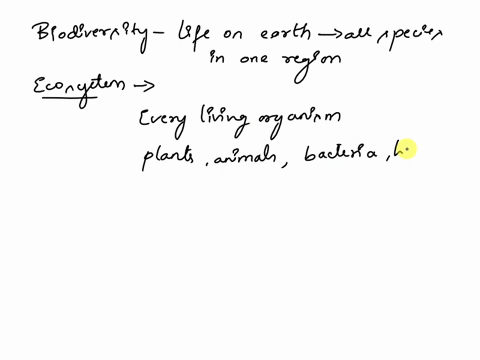 Biodiversity - life on earth → all species
in one region
Ecosystem →
Every living organism
plants, animals, bacteria, h